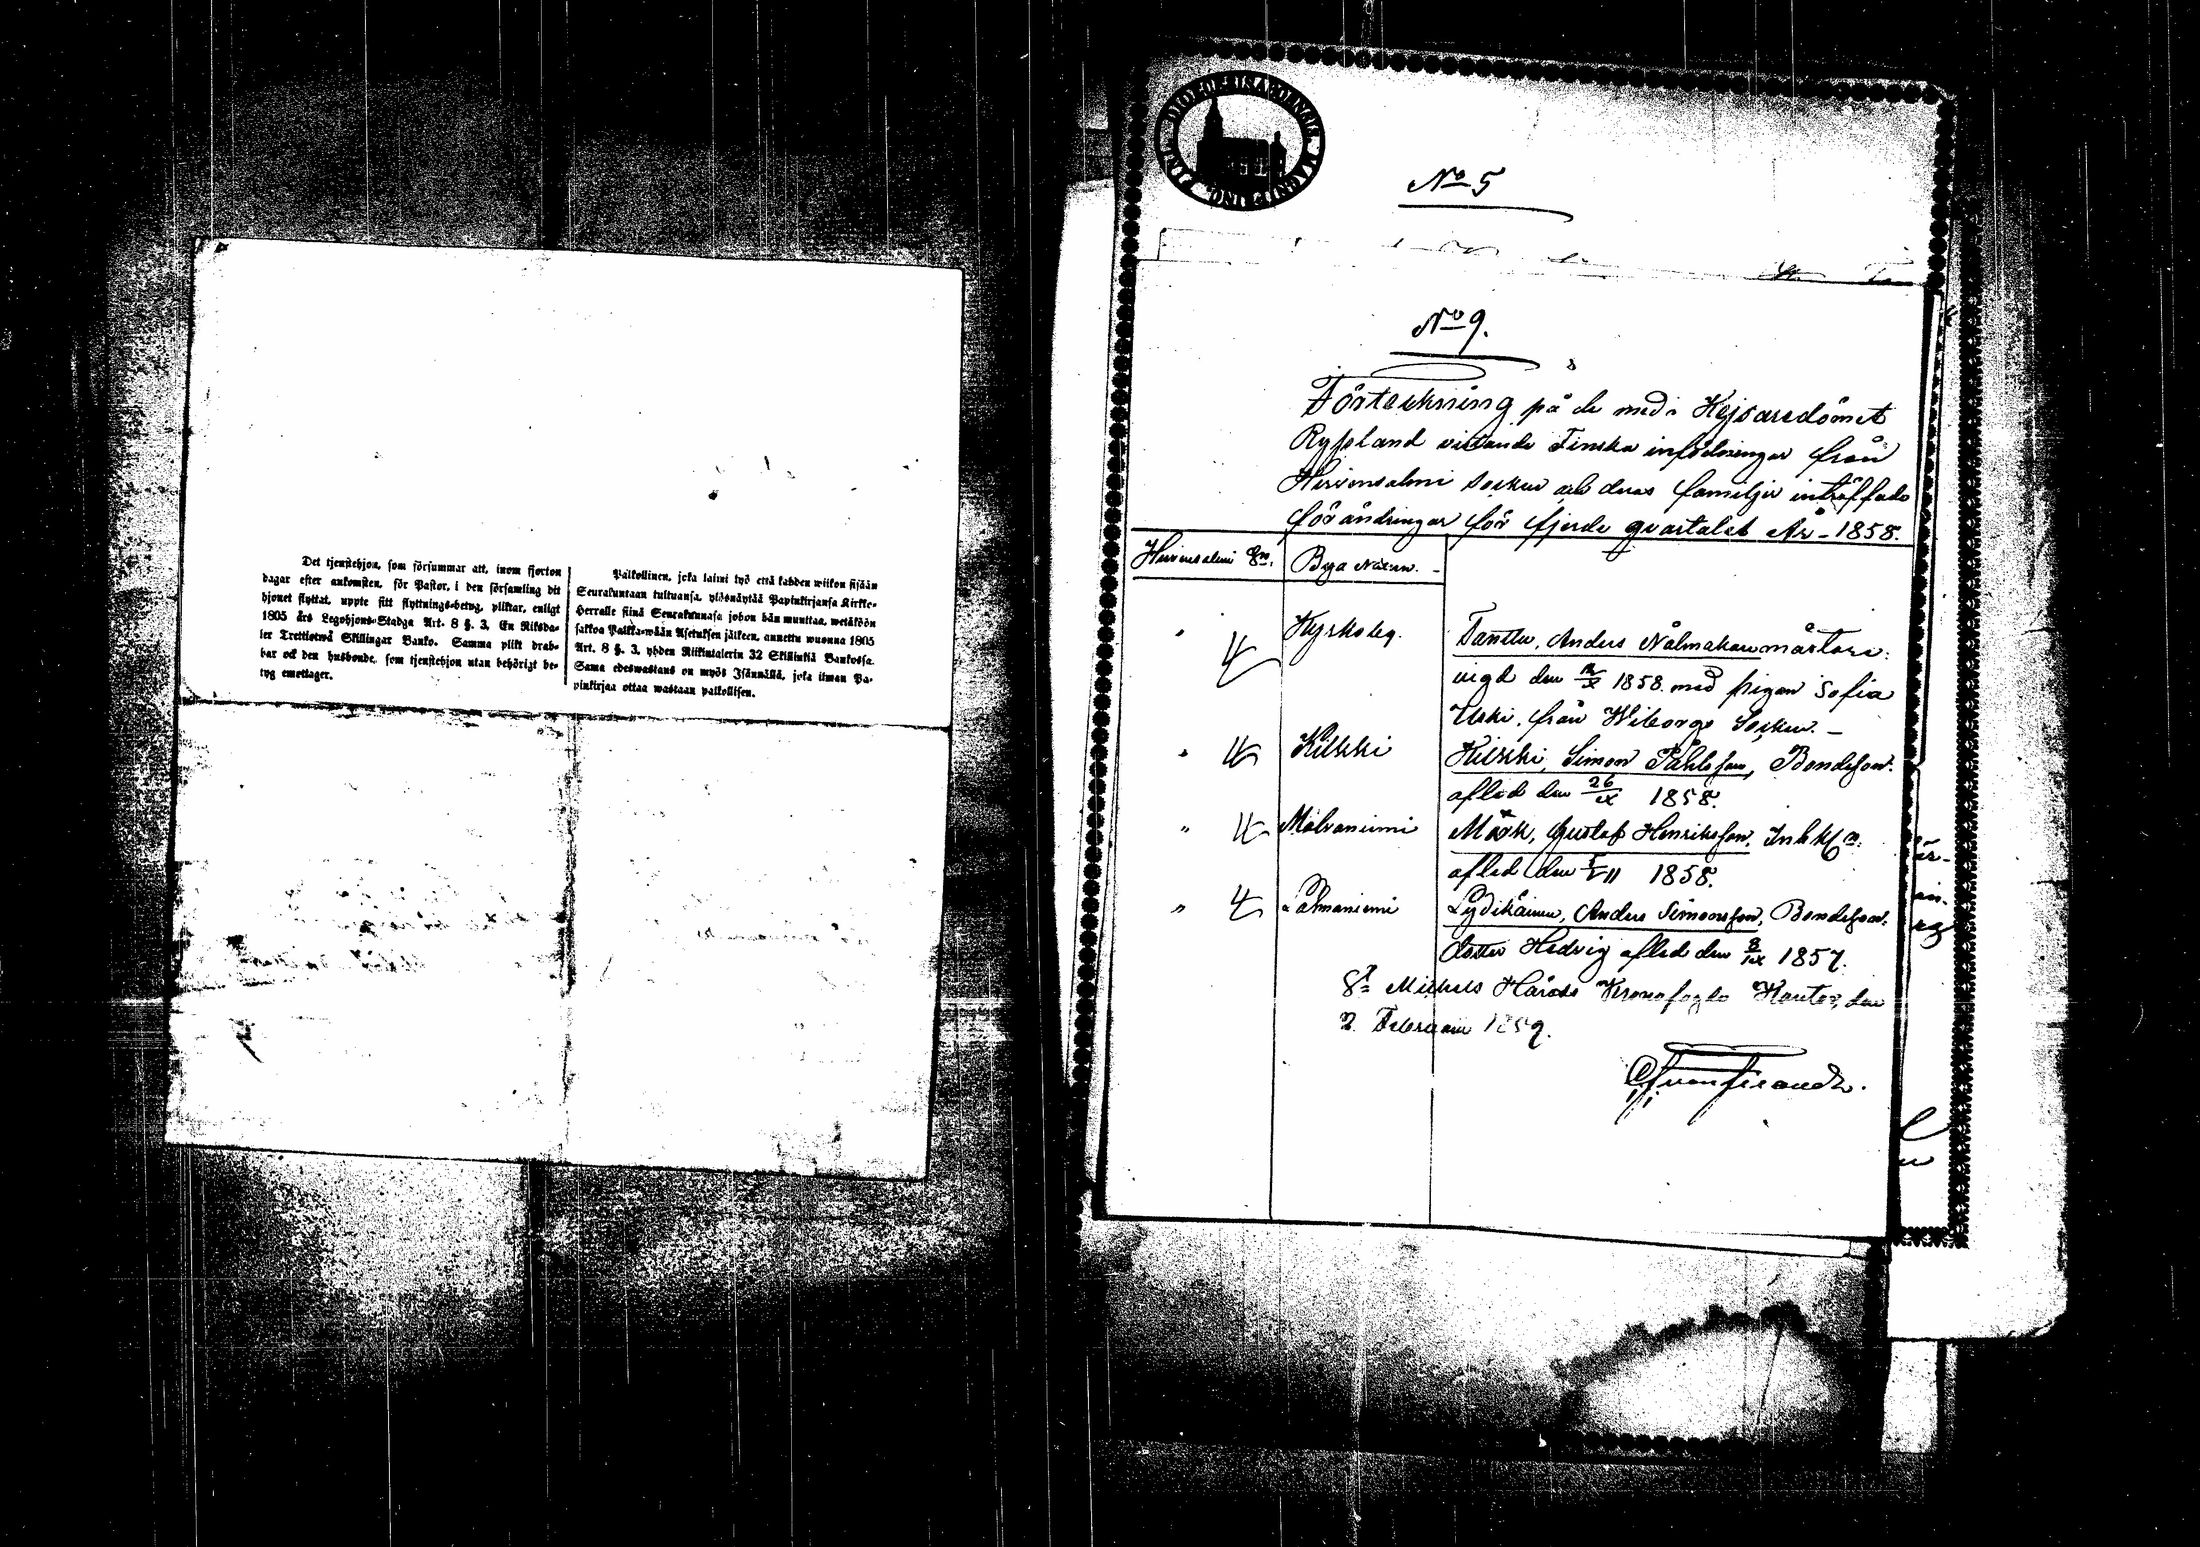 Det tjenstehjon, som försummar att, inom fjorton
dagar efter ankomsten, för Pastor, i den församling dit
hjonet flyttat, uppte sitt flyttnings-betyg, pliktar, enligt
1805 års Legohjons-Stadga Art. 8 §. 3, En Riksda-
ler Trettiotwå Skillingar Banko. Samma plikt drab-
bar ock den husbonde, som tjenstehjon utan behörigt be-
tyg emottager.
Palkollinen, joka laimi lyö että kahden wiikon sisään
Seurakuntaan tultuansa, ylösnäytää Papinkirjansa Kirkko-
Herralle siinä Seurakunnasa johon hän muuttaa, wetäköön
sakkoa Palkka-wään Asetuksen jälkeen, annettu wuonna 1805
Art. 8 §. 3, yhden Riikintalerin 32 Skillinkiä Bankossa.
Sama edeswastaus on myös Isännällä, joka ilman Pa-
pinkirjaa ottaa wastaan palkollisen.
No 5
No 9.
Förteckning på de med i Kejsaredömet
Ryssland vistande Finska infödningar från
Hirvensalmi Socken och deras familjer inträffade
förändringar för fjerde qvartalet År - 1858.
Hirvensalmi Sn. Bya Namn. -
" 4 Hyrkoleg. Tanttu, Anders
vigd den 1858. med pigan Sofia
Uski, från Wiborgs Socken. -
" 4 Kilkki Kilkki, Simon Påhlsson, Bondeson.
afled den 26/IX 1858.
" 4 Malvaniemi Mörk, Gustaf Henriksson,
afled den 1858.
" 4 Lahnaniemi Lydikäinen, Anders Simonsson, Bondeson.
dotter Hedvig afled den 8/IX 1857.
St Michels Härads Kronofogde Kontor, den
2. Februari 1859.